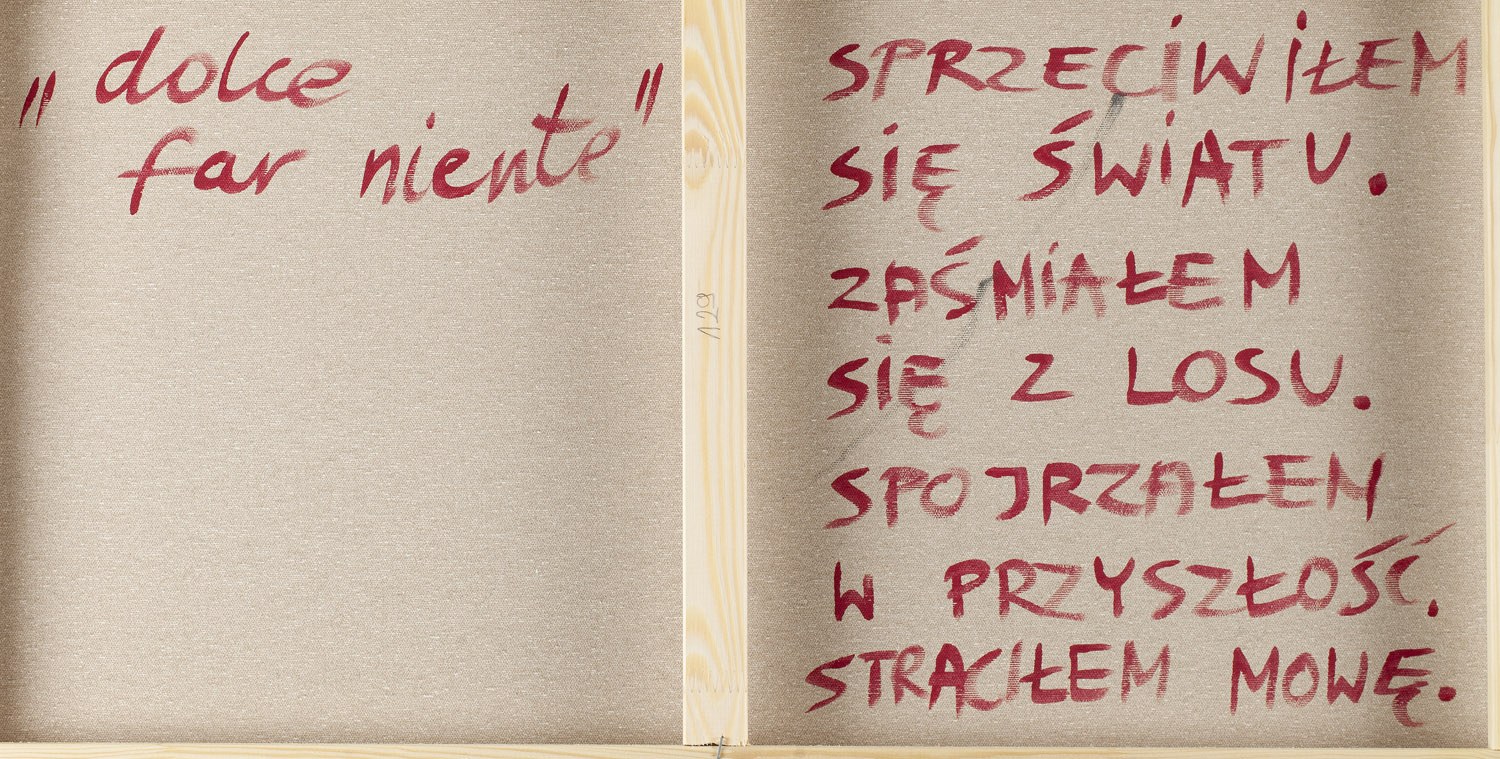 "dolce
far niente"
129
SPRZECIWIŁEM
SIĘ ŚWIATU.
ZAŚMIAŁEM
SIĘ Z LOSU.
SPOJRZAŁEM
W PRZYSZŁOŚĆ.
STRACIŁEM MOWĘ.